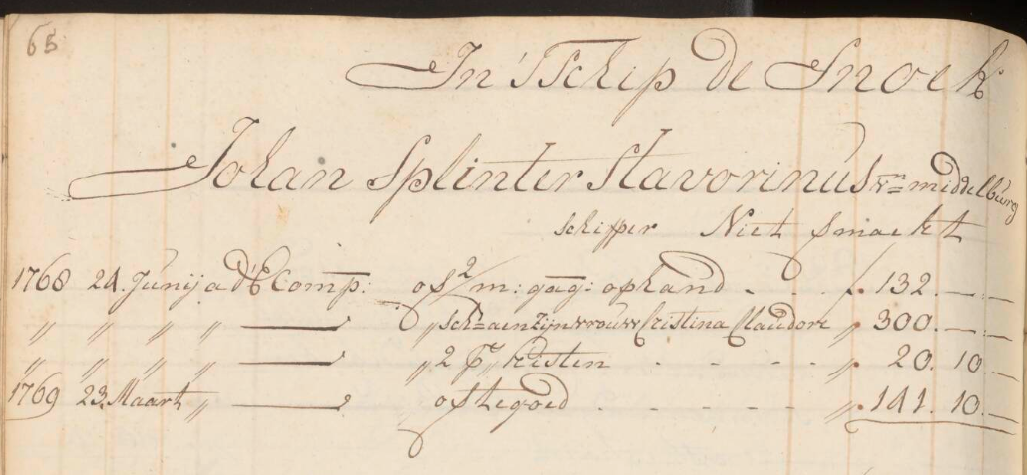 65
In 'T Schip de Snoek
Johan Splinter Stavorinus vn middelburg
schipper Niet smackt
1768 24. Junij a d'E Comp: os 2/m: gag: ophand . . . f. 132. — —
" " " " — " sch= aen zijn vrouw Cristina Claudore ". 300. — —
" " " " — " 2 ps kisten . - - - ". 20. 10 —
1769 23. Maart " — os tegoed . - - - - ". 141. 10. —